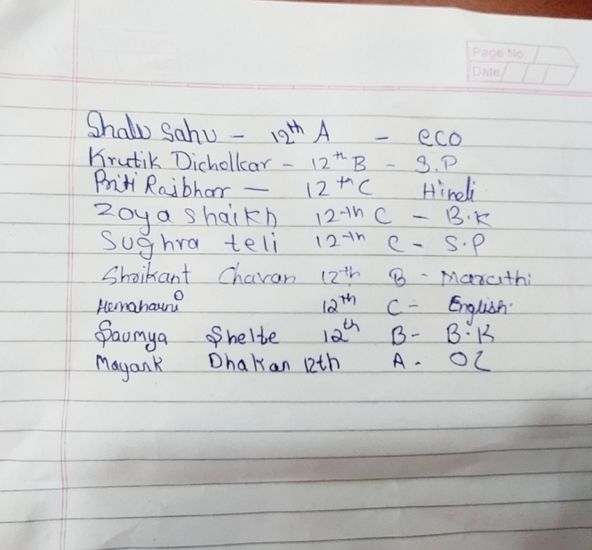 Page No.
Date
Shalu Sahu - 12th A - eco
Krutik Dicholkar - 12th B - S.P
Priti Rajbhar - 12th C Hindi
Zoya Shaikh 12th C - B.K
Sughra teli 12th C - S.P
Shrikant Chavan 12th B - Marathi
12th C - English.
Saumya Shelte 12th B - B.K
Mayank Dhakan 12th A - OC